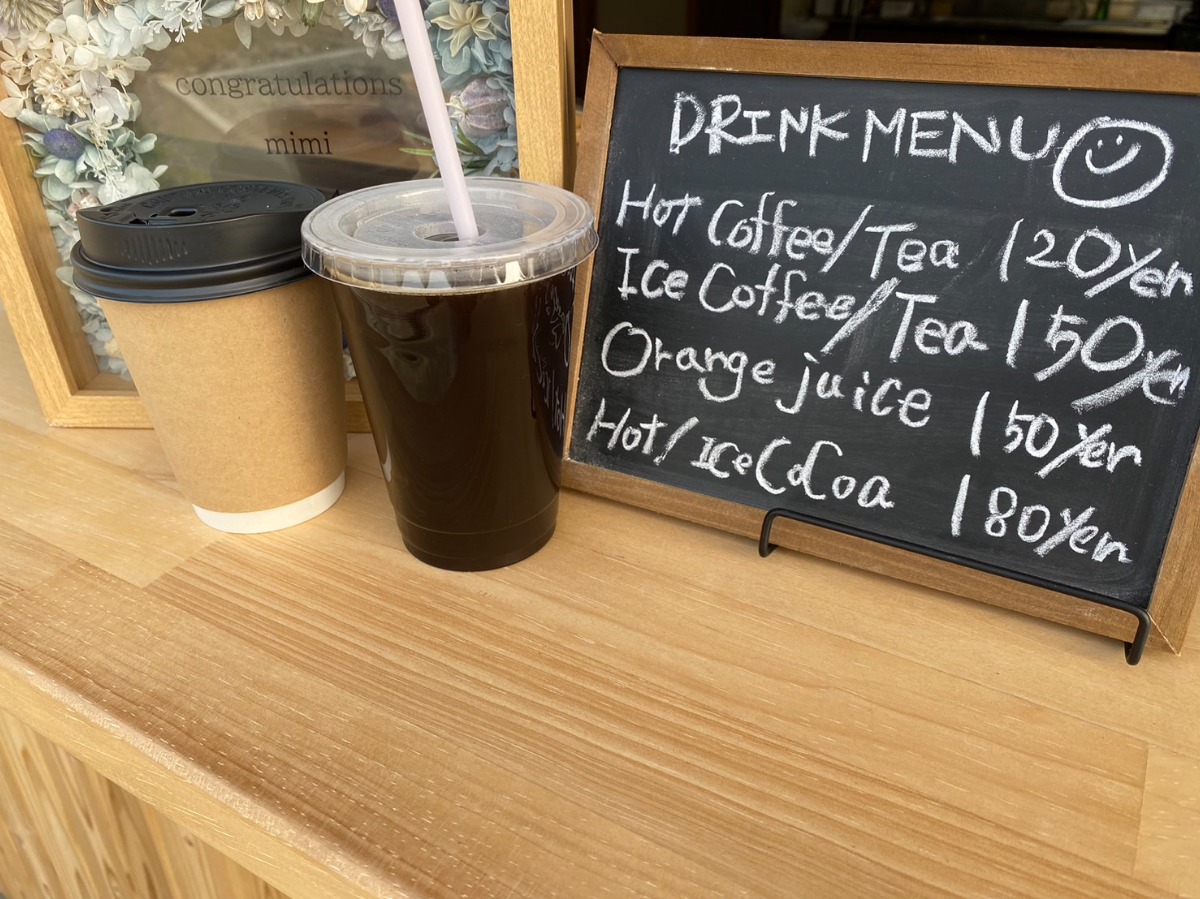 congratulations
mimi
DRINK MENU
Hot Coffee/Tea 120Yen
Ice Coffee/Tea 150Yen
Orange juice 150Yen
Hot/IceCoCoa 180Yen